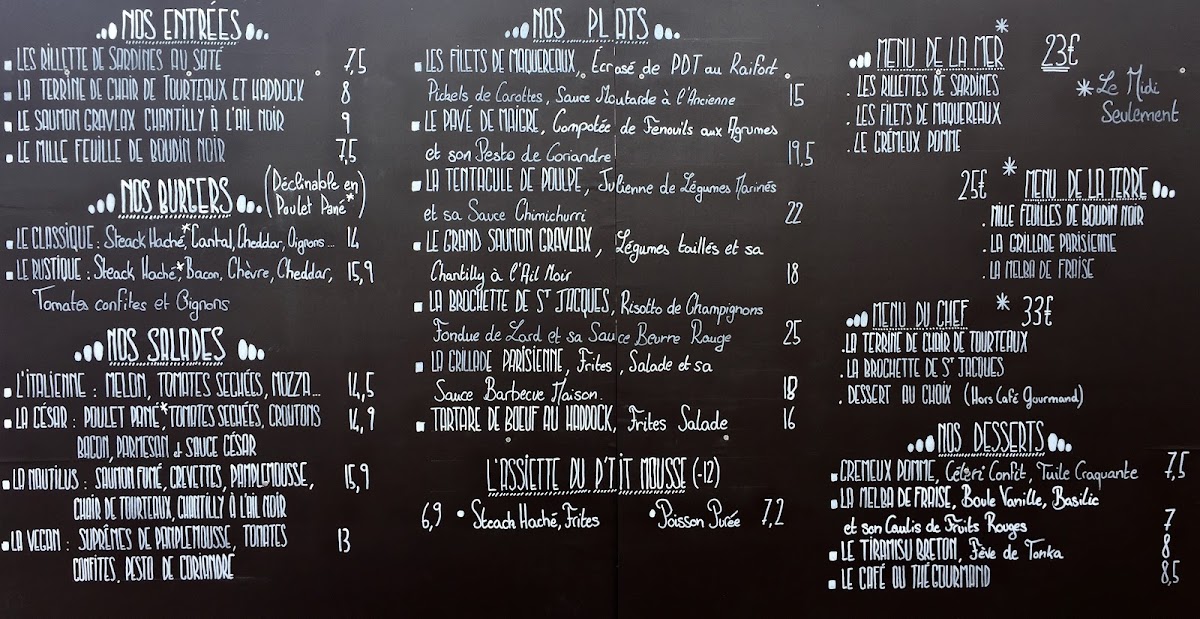 NOS ENTRÉES
LES RILLETTE DE SARDINES AU SATÉ 7,5
LA TERRINE DE CHAIR DE TOURTEAUX ET HADDOCK 8
LE SAUMON GRAVLAX CHANTILLY À L'AIL NOIR 9
LE MILLE FEUILLE DE BOUDIN NOIR 7,5
NOS BURGERS (Déclinable en
Poulet Pané*)
LE CLASSIQUE : Steack Haché,* Cantal, Cheddar, Oignons... 14
LE RUSTIQUE : Steack Haché,* Bacon, Chèvre, Cheddar, 15,9
Tomates confites et Oignons
NOS SALADES
L'ITALIENNE : MELON, TOMATES SECHÉES, MOZZA... 14,5
LA CÉSAR : POULET PANÉ,* TOMATES SECHÉES, CROUTONS 14,9
BACON, PARMESAN et SAUCE CÉSAR
LA NAUTILUS : SAUMON FUMÉ, CREVETTES, PAMPLEMOUSSE, 15,9
CHAIR DE TOURTEAUX, CHANTILLY À L'AIL NOIR
LA VEGAN : SUPRÊMES DE PAMPLEMOUSSE, TOMATES 13
CONFITES, PESTO DE CORIANDRE
NOS PLATS
LES FILETS DE MAQUEREAUX, Ecrasé de PDT au Raifort
Pickels de Carottes, Sauce Moutarde à l'Ancienne 15
LE PAVÉ DE MAIGRE, Compotée de Fenouils aux Agrumes
et son Pesto de Coriandre 19,5
LA TENTACULE DE POULPE, Julienne de Légumes Marinés
et sa Sauce Chimichurri 22
LE GRAND SAUMON GRAVLAX, Légumes taillés et sa
Chantilly à l'Ail Noir 18
LA BROCHETTE DE ST JACQUES, Risotto de Champignons
Fondue de Lard et sa Sauce Beurre Rouge 25
LA GRILLADE PARISIENNE, Frites, Salade et sa
Sauce Barbecue Maison. 18
TARTARE DE BŒUF AU HADDOCK, Frites Salade 16
L'ASSIETTE DU P'TIT MOUSSE (-12)
6,9 • Steack Haché, Frites • Poisson Purée 7,2
MENU DE LA MER* 23€
. LES RILLETTES DE SARDINES
. LES FILETS DE MAQUEREAUX
. LE CRÉMEUX POMME
* Le Midi
Seulement
25€ * MENU DE LA TERRE
. MILLE FEUILLES DE BOUDIN NOIR
. LA GRILLADE PARISIENNE
. LA MELBA DE FRAISE
MENU DU CHEF * 33€
. LA TERRINE DE CHAIR DE TOURTEAUX
. LA BROCHETTE DE ST JACQUES
. DESSERT AU CHOIX (Hors Café Gourmand)
NOS DESSERTS
CREMEUX POMME, Céleri Confit, Tuile Craquante 7,5
LA MELBA DE FRAISE, Boule Vanille, Basilic
et son Coulis de Fruits Rouges 7
LE TIRAMISU BRETON, Fève de Tonka 8
LE CAFÉ OU THÉ GOURMAND 8,5